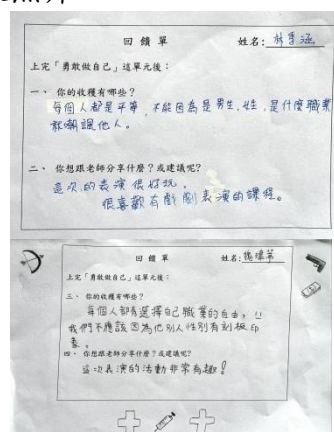 回饋單
姓名：林季涵
上完「勇敢做自己」這單元後：
一、你的收穫有哪些？
每個人都是平等，不能因為是男生、女生，是什麼職業
就嘲諷他人。
二、你想跟老師分享什麼？或建議呢？
這次的表演很好玩，
很喜歡有戲劇表演的課程。
回饋單
姓名：
上完「勇敢做自己」這單元後：
三、你的收穫有哪些？
每個人都有選擇自己職業的自由，
我們不應該因為他別人性別有刻板印
象。
四、你想跟老師分享什麼？或建議呢？
這次表演的活動非常有趣！